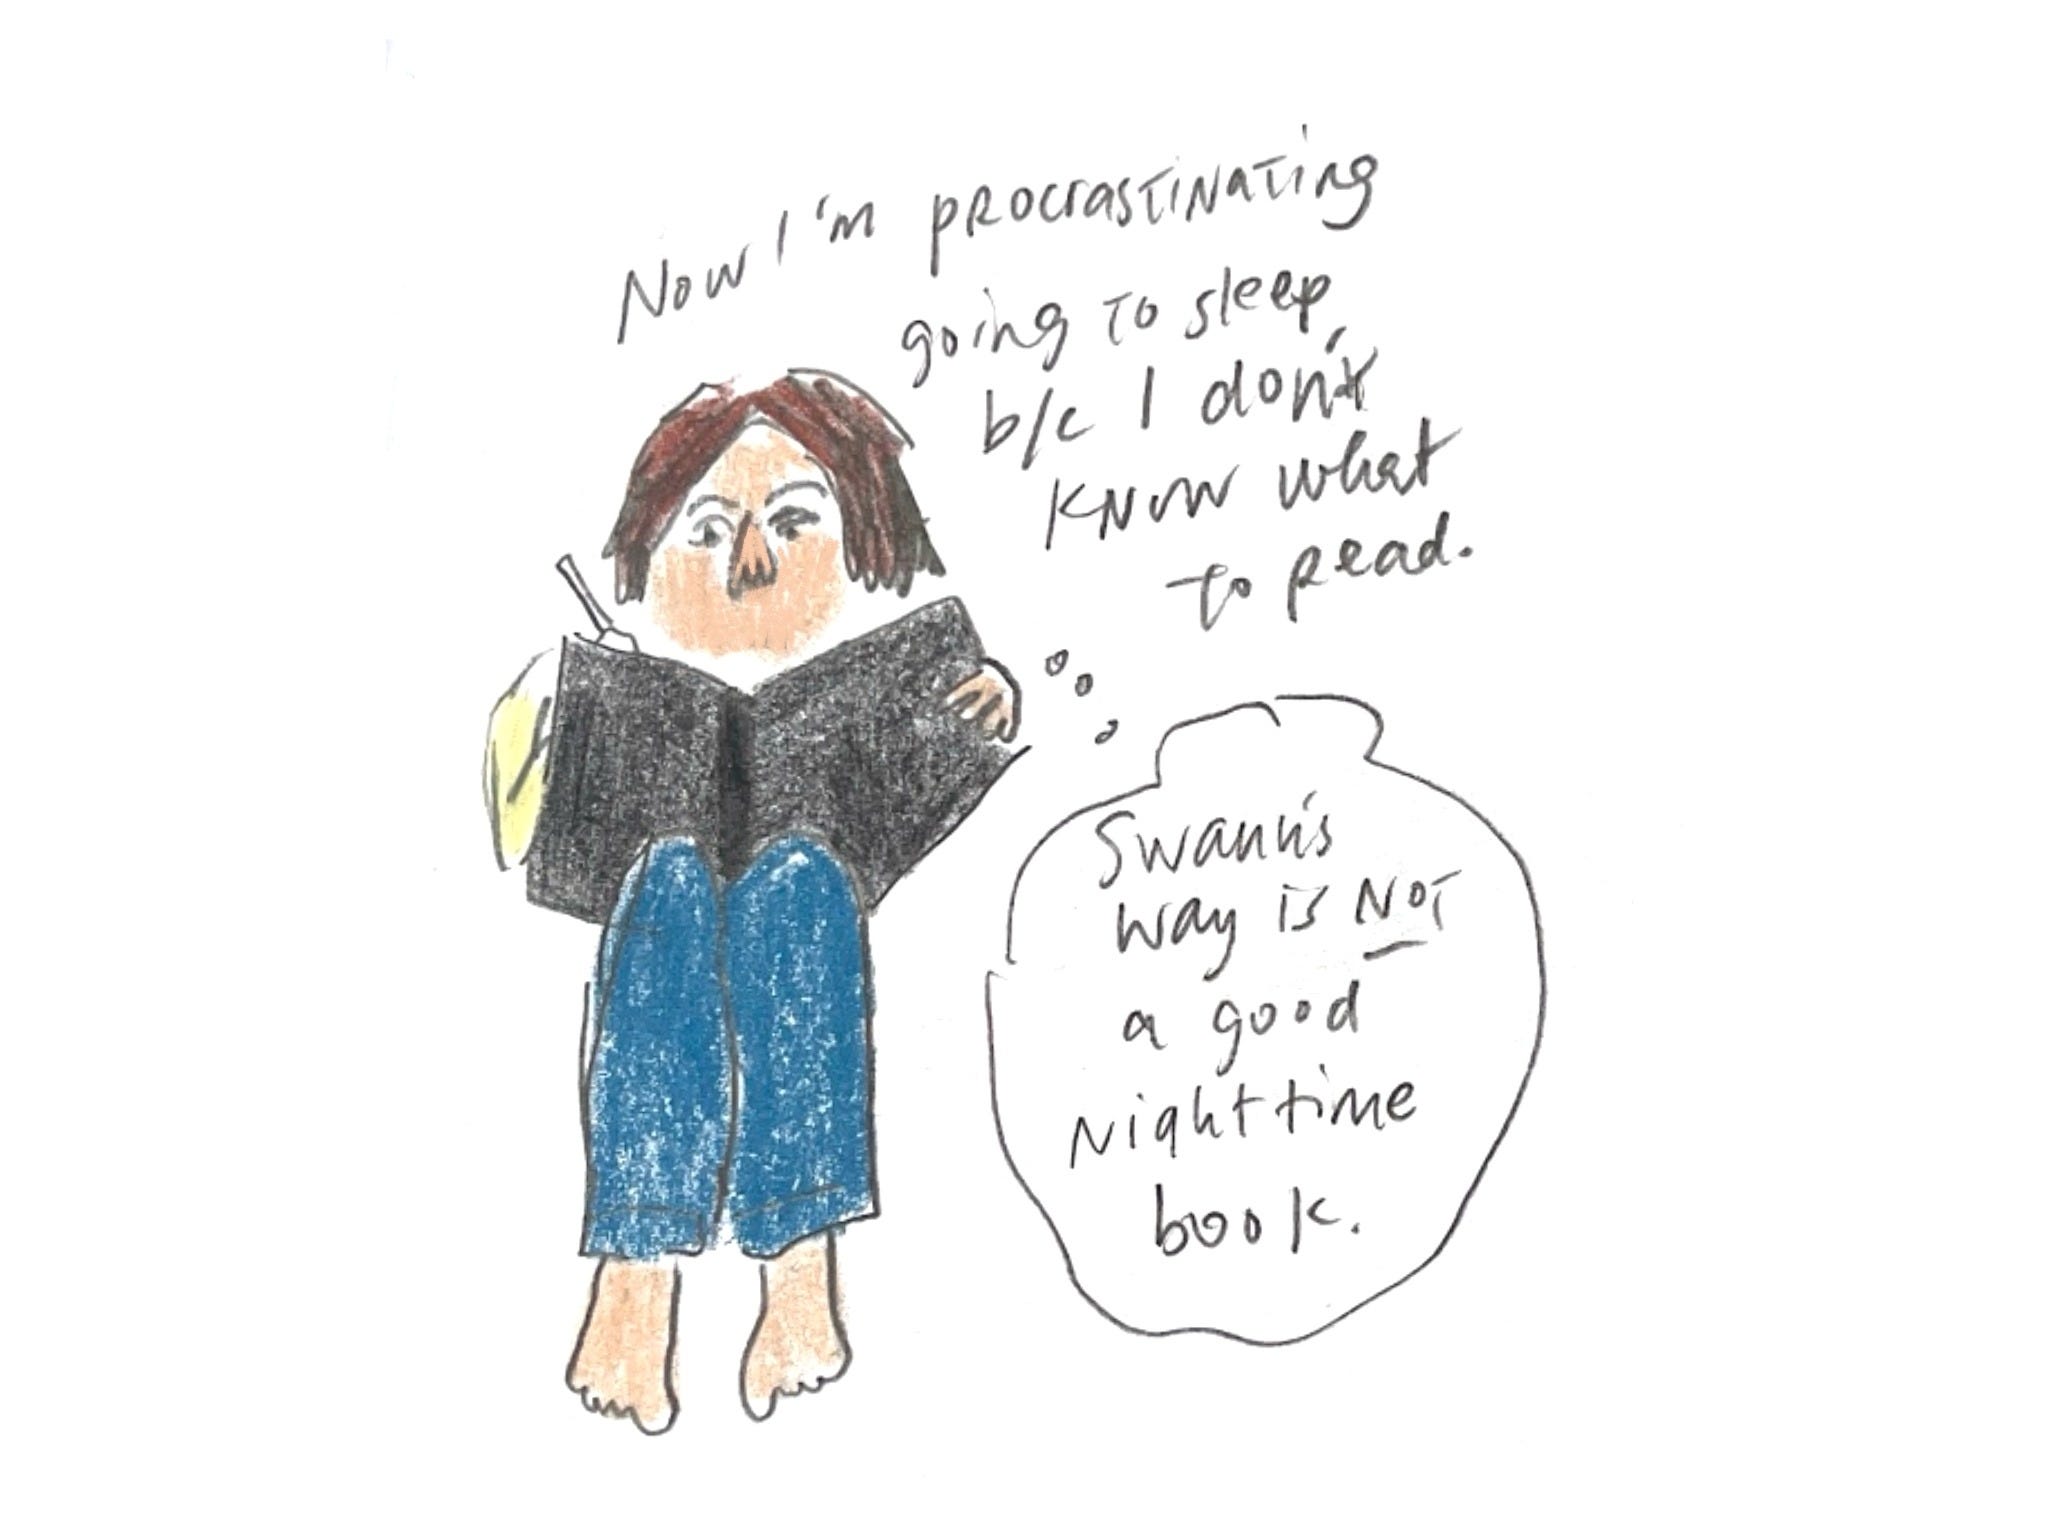 Now I'm procrastinating
going to sleep,
b/c I don't
know what
to read.
Swann's
way is NOT
a good
nighttime
book.